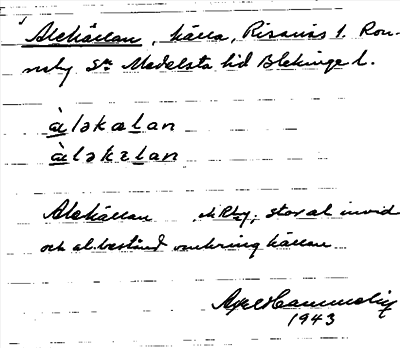 Alekällan, källa, Risanäs 1. Ron-
neby sn Medelsta hd Blekinge l.
àləkælan
àləkælan
Alekällan Rby; stor al invid
och al.bestånd omkring källan
Axel
1943